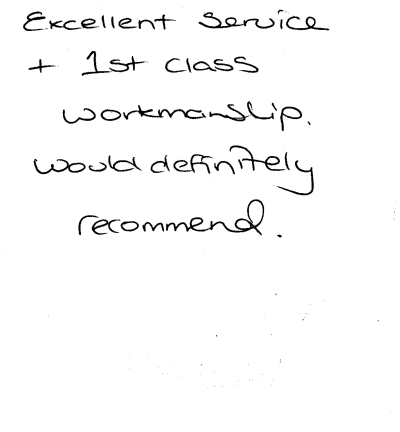 Excellent Service
+ 1st class
workmanship.
would definitely
recommend.